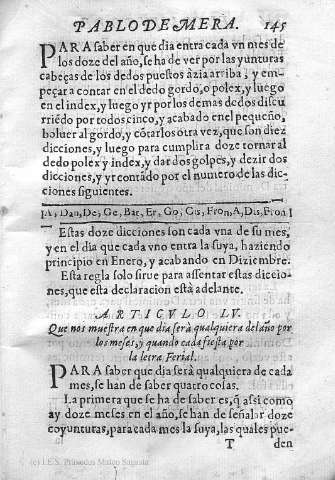 PABLO DE MERA. 145
PARA saber en que dia entra cada vn mes de
los doze del año, se ha de ver por las yunturas
cabeças de los dedos puestos àzia arriba, y em-
peçar a contar en el dedo gordo, o polex, y luego
en el index, y luego yr por los demas dedos discu
rriẽdo por todos cinco, y acabado en el pequeño,
boluer al gordo, y cõtarlos otra vez, que son diez
dicciones, y luego para cumplir a doze tornar al
dedo polex y index, y dar dos golpes, y dezir dos
dicciones, y yr contãdo por el numero de las dic-
ciones siguientes.
A, Dan, De, Ge, Bat, Er, Go, Cis, Fron, A, Dis, Fron
Estas doze dicciones son cada vna de su mes,
y en el dia que cada vno entra la suya, haziendo
principio en Enero, y acabando en Diziembre.
Esta regla solo sirue para assentar estas diccio-
nes, que esta declaracion està adelante.
ARTICVLO LV.
Que nos muestra en que dia serà qualquiera del año por
los meses, y quando cada fiesta por
la letra Ferial.
PARA saber que dia serà qualquiera de cada
mes, se han de saber quatro cosas.
La primera que se ha de saber es, q̃ assi como
ay doze meses en el año, se han de señalar doze
coyunturas, para cada mes la suya, las quales pue-
T den
(c) I.E.S. Práxedes Mateo Sagasta